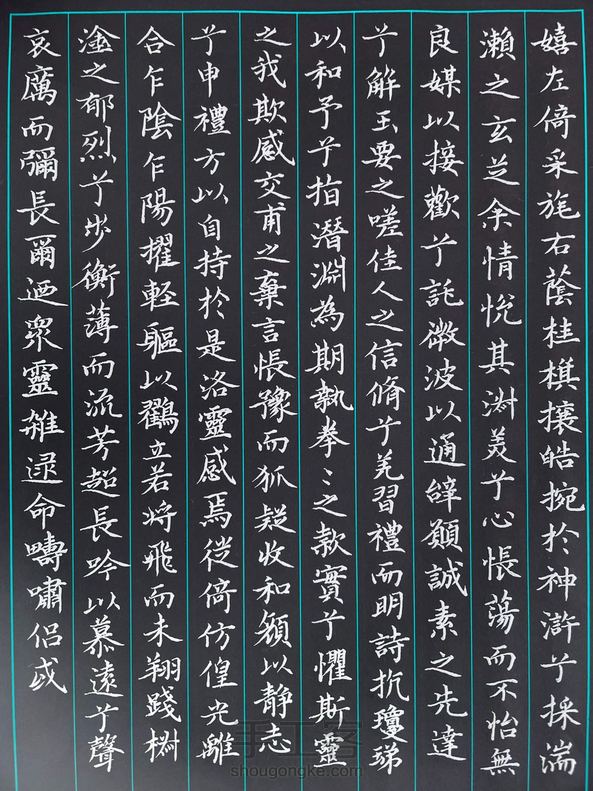 嬉左倚采旄右蔭桂棋攘皓捥於神滸兮採湍
瀨之玄芝余情悅其淑美兮心悵蕩而不怡無
良媒以接歡兮託微波以通辭願誠素之先達
兮解玉要之嗟佳人之信脩兮羌習禮而明詩抗瓊珶
以和予兮指潛淵為期執拳〻之款實兮懼斯靈
之我欺感交甫之棄言悵豫而狐疑收和顏以静志
兮申禮方以自持於是洛靈感焉徙倚仿偟光離
合乍陰乍陽擢輕軀以鸖立若将飛而未翔踐椒
塗之郁烈兮步衡薄而流芳超長吟以慕遠兮聲
哀厲而彌長爾迺眾靈雑遝命疇嘯侶或
手工客
shougongke.com